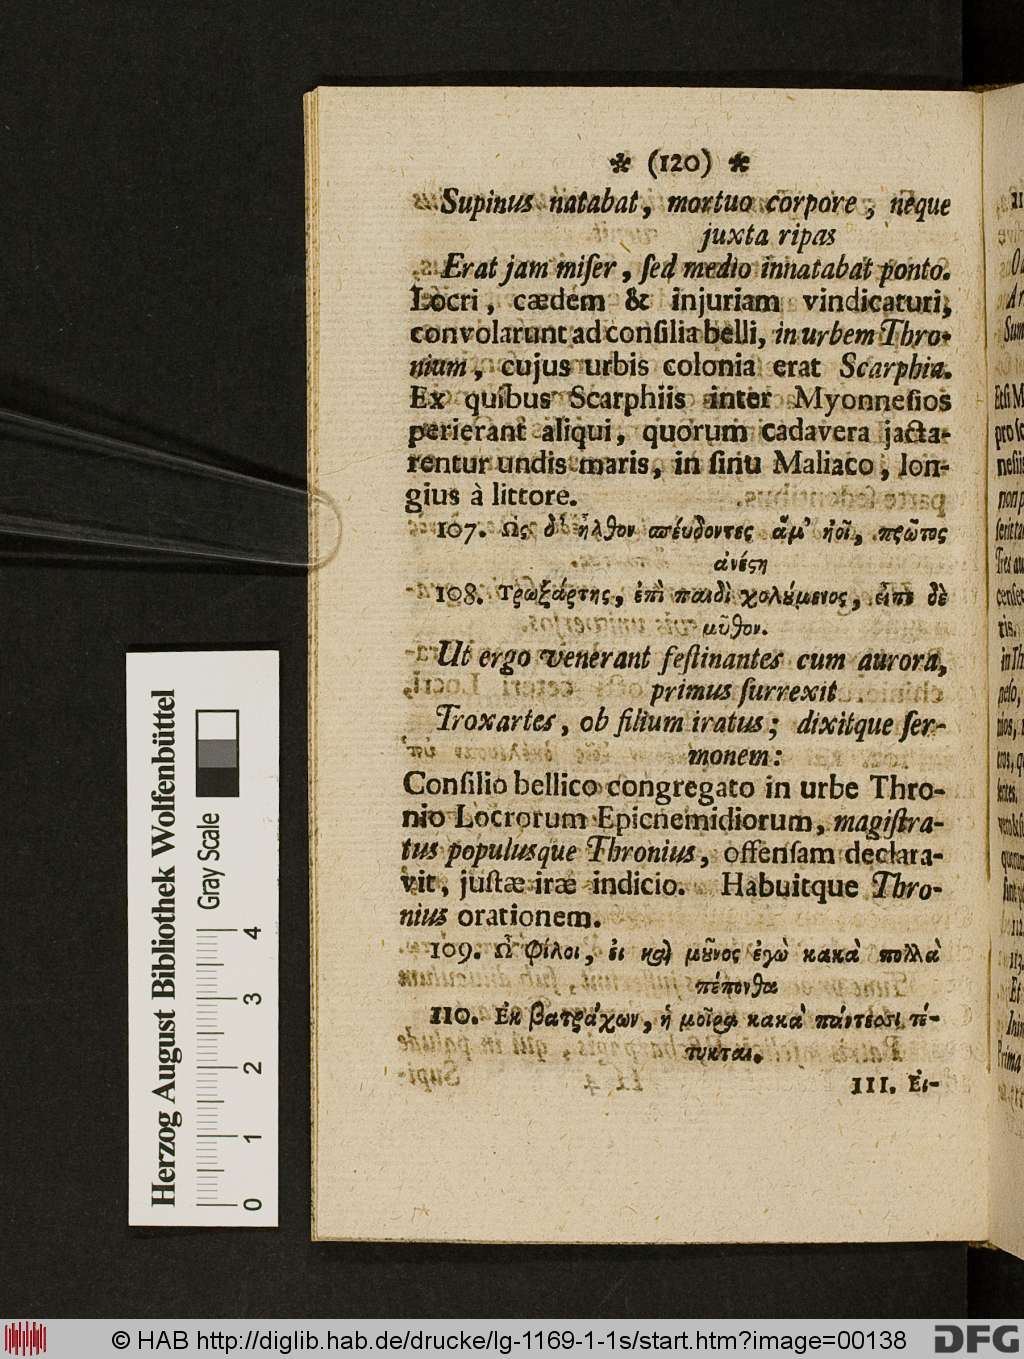 * (120) *
Supinus natabat, mortuo corpore, neque
juxta ripas
Erat jam miser, sed medio innatabat ponto.
Locri, cædem & injuriam vindicaturi,
convolarunt ad consilia belli, in urbem Thro-
nium, cujus urbis colonia erat Scarphia.
Ex quibus Scarphiis inter Myonnesios
perierant aliqui, quorum cadavera jacta-
rentur undis maris, in sinu Maliaco, lon-
gius à littore.
107. Ὡς δ' ἦλθον σπέυδοντες ἅμ' ἠοῖ, πρῶτος
ἀνέϛη
108. Τρωξάρτης, ἐπὶ παιδὶ χολύμενος, εἶπε δὲ
μῦθον.
Ut ergo venerant festinantes cum aurora,
primus surrexit
Troxartes, ob filium iratus; dixitque ser-
monem:
Consilio bellico congregato in urbe Thro-
nio Locrorum Epicnemidiorum, magistra-
tus populusque Thronius, offensam declara-
vit, justæ iræ indicio. Habuitque Thro-
nius orationem.
109. Ὦ φίλοι, ἐι καὶ μȣ̃νος ἐγὼ κακὰ πολλὰ
πέπονθα
110. Ἐκ βατράχων, ἡ μοῖρα κακὰ πάντεσσι τέ-
τυκται.
111. Ἐι-
Herzog August Bibliothek Wolfenbüttel
Gray Scale
0 1 2 3 4
© HAB http://diglib.hab.de/drucke/lg-1169-1-1s/start.htm?image=00138
DFG